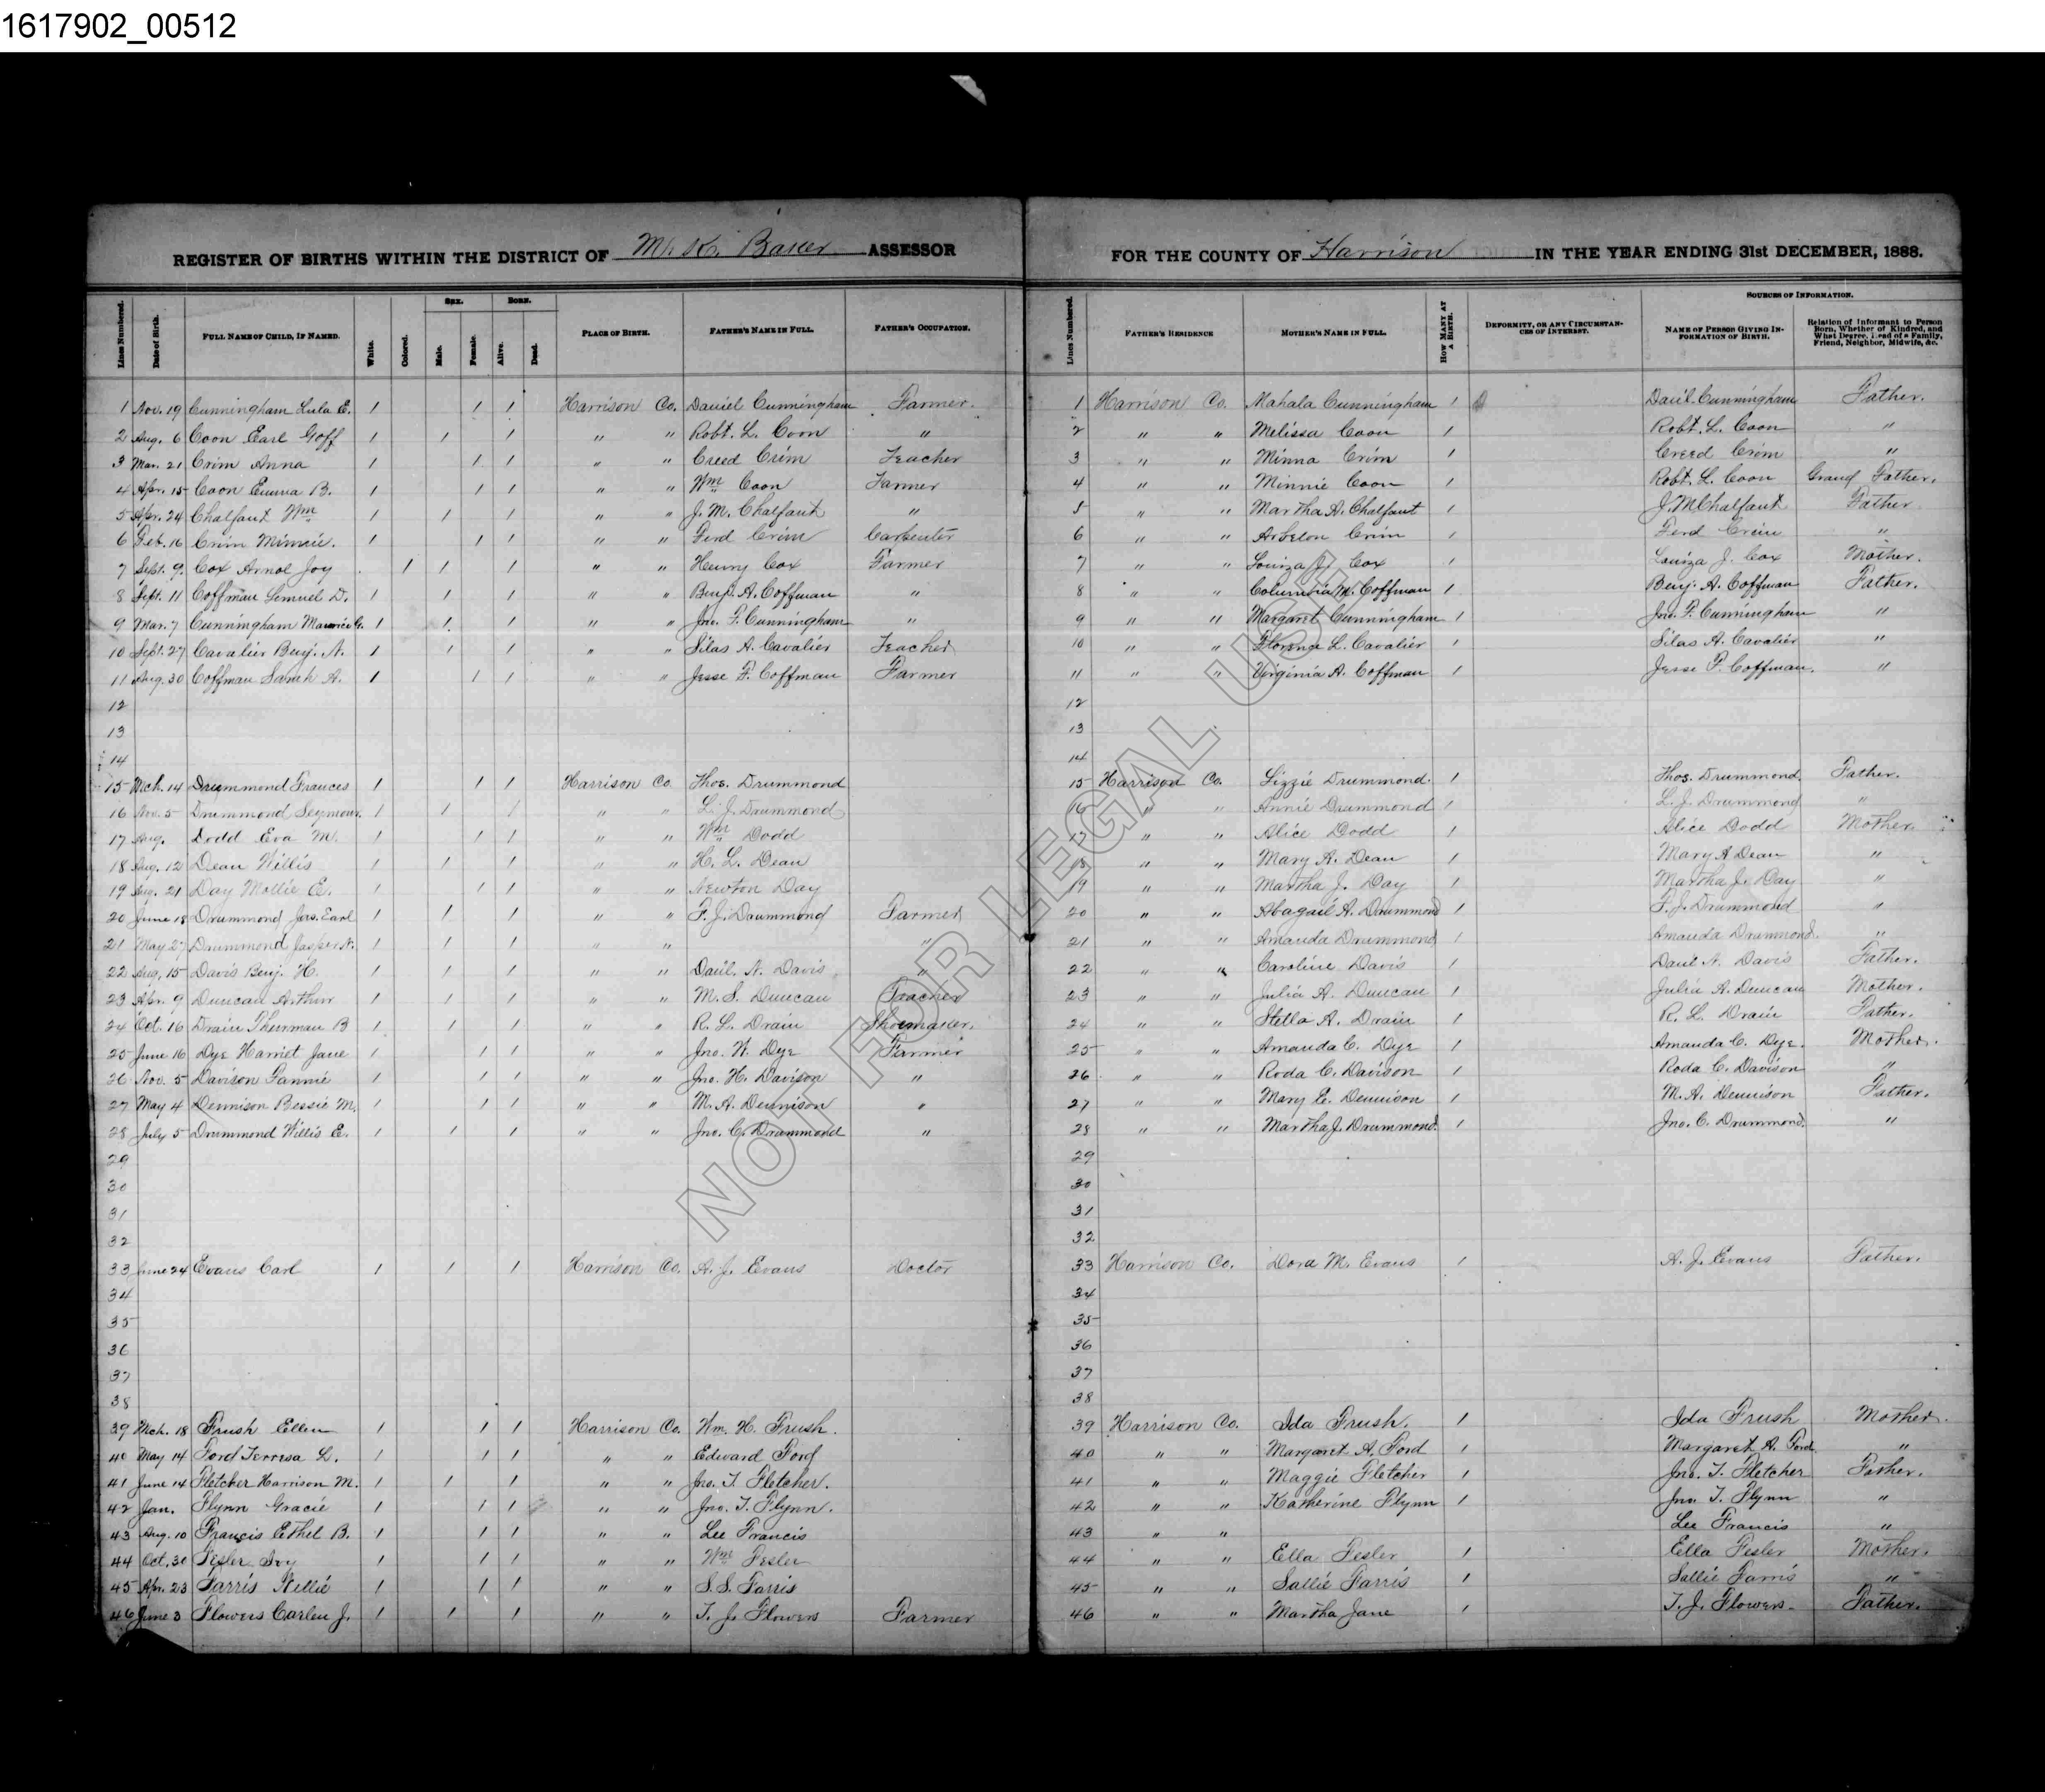 1617902_00512
REGISTER OF BIRTHS WITHIN THE DISTRICT OF M. K. Baker ASSESSOR FOR THE COUNTY OF Harrison IN THE YEAR ENDING 31st DECEMBER, 1888.
Lines Numbered. Date of Birth. FULL NAME OF CHILD, IF NAMED. White. Colored. SEX. Male. Female. BORN. Alive. Dead. PLACE OF BIRTH. FATHER'S NAME IN FULL. FATHER'S OCCUPATION. Lines Numbered. FATHER'S RESIDENCE MOTHER'S NAME IN FULL. HOW MANY AT A BIRTH. DEFORMITY, OR ANY CIRCUMSTANCES OF INTEREST. SOURCES OF INFORMATION. NAME OF PERSON GIVING INFORMATION OF BIRTH. Relation of Informant to Person Born, Whether of Kindred, and What Degree, Head of a Family, Friend, Neighbor, Midwife, &c.
1 Nov. 19 Cunningham Lula E. 1 1 1 Harrison Co. Daniel Cunningham Farmer. 1 Harrison Co. Mahala Cunningham 1 Danl Cunningham Father.
2 Aug. 6 Coon Earl Goff 1 1 1 " " Robt. L. Coon " 2 " " Melissa Coon 1 Robt. L. Coon "
3 Mar. 21 Crim Anna 1 1 1 " " Creed Crim Teacher 3 " " Minna Crim 1 Creed Crim "
4 Apr. 15 Coon Emma B. 1 1 1 " " Wm Coon Farmer 4 " " Minnie Coon 1 Robt. L. Coon Grand Father.
5 Apr. 24 Chalfant Wm 1 1 1 " " J. M. Chalfant " 5 " " Martha A. Chalfant 1 J. M Chalfant Father
6 Feb. 16 Crim Minnie. 1 1 1 " " Ferd Crim Carpenter 6 " " Crim 1 Ferd Crim "
7 Sept. 9. Cox Arnol Joy 1 1 1 " " Henry Cox Farmer 7 " " Louiza J. Cox 1 Louiza J. Cox Mother.
8 Sept. 11 Coffman Semuel D. 1 1 1 " " Benj. A. Coffman " 8 " " Columbia M. Coffman 1 Benj. A. Coffman Father.
9 Mar. 7 Cunningham Maurice G. 1 1 1 " " Jno. F. Cunningham " 9 " " Margaret Cunningham 1 Jno. F. Cunningham "
10 Sept. 27 Cavalier Benj. N. 1 1 1 " " Silas A. Cavalier Teacher 10 " " Florence L. Cavalier 1 Silas A. Cavalier "
11 Aug. 30 Coffman Sarah A. 1 1 1 " " Jesse F. Coffman Farmer 11 " " Virginia A. Coffman 1 Jesse F. Coffman. "
12 12
13 13
14 14
15 Mch. 14 Drummond Frances 1 1 1 Harrison Co. Thos. Drummond 15 Harrison Co. Lizzie Drummond. 1 Thos. Drummond. Father.
16 Nov. 5 Drummond Seymour. 1 1 1 " " L. J. Drummond 16 " " Annie Drummond 1 L. J. Drummond "
17 Aug. Dodd Eva M. 1 1 1 " " Wm Dodd 17 " " Alice Dodd 1 Alice Dodd Mother.
18 Aug. 12 Dean Willis 1 1 1 " " H. L. Dean 18 " " Mary A. Dean 1 Mary A Dean "
19 Aug. 21 Day Mollie E. 1 1 1 " " Newton Day 19 " " Martha J. Day 1 Martha J. Day "
20 June 18 Drummond Jas. Earl 1 1 1 " " F. J. Drummond Farmer 20 " " Abagail A. Drummond 1 F. J. Drummond "
21 May 27 Drummond Jasper N. 1 1 1 " " " 21 " " Amanda Drummond. 1 Amanda Drummond. "
22 Aug. 15 Davis Benj. H. 1 1 1 " " Danl. N. Davis " 22 " " Caroline Davis 1 Danl N. Davis Father.
23 Apr. 9 Duncan Arthur 1 1 1 " " M. S. Duncan Teacher 23 " " Julia A. Duncan 1 Julia A. Duncan Mother.
24 Oct. 16 Drain Thurman B 1 1 1 " " R. L. Drain Shoemaker. 24 " " Stella A. Drain 1 R. L. Drain Father.
25 June 16 Dye Harriet Jane 1 1 1 " " Jno. W. Dye Farmer 25 " " Amanda C. Dye 1 Amanda C. Dye. Mother.
26 Nov. 5 Davison Fannie 1 1 1 " " Jno. H. Davison " 26 " " Roda C. Davison 1 Roda C. Davison "
27 May 4 Dennison Bessie M. 1 1 1 " " M. A. Dennison " 27 " " Mary E. Dennison 1 M. A. Dennison Father.
28 July 5 Drummond Willis E. 1 1 1 " " Jno. C. Drummond " 28 " " Martha J. Drummond. 1 Jno. C. Drummond. "
29 29
30 30
31 31
32 32
33 June 24 Evans Carl 1 1 1 Harrison Co. A. J. Evans Doctor 33 Harrison Co. Dora M. Evans 1 A. J. Evans Father.
34 34
35 35
36 36
37 37
38 38
39 Mch. 18 Frush Ellen 1 1 1 Harrison Co. Wm. H. Frush. 39 Harrison Co. Ida Frush. 1 Ida Frush Mother.
40 May 14 Ford Terresa L. 1 1 1 " " Edward Ford 40 " " Margaret A. Ford 1 Margaret A. Ford "
41 June 14 Fletcher Harrison M. 1 1 1 " " Jno. T. Fletcher. 41 " " Maggie Fletcher 1 Jno. T. Fletcher Father.
42 Jan. Flynn Gracie 1 1 1 " " Jno. T. Flynn. 42 " " Katherine Flynn 1 Jno T. Flynn "
43 Aug. 10 Francis Ethel B. 1 1 1 " " Lee Francis 43 " " Lee Francis "
44 Oct. 30 Fesler Ivy 1 1 1 " " Wm Fesler 44 " " Ella Fesler 1 Ella Fesler Mother.
45 Apr. 23 Farris Nellie 1 1 1 " " S. S. Farris 45 " " Sallie Farris 1 Sallie Farris "
46 June 3 Flowers Carlen J. 1 1 1 " " T. J. Flowers Farmer 46 " " Martha Jane 1 T. J. Flowers. Father.
NOT FOR LEGAL USE